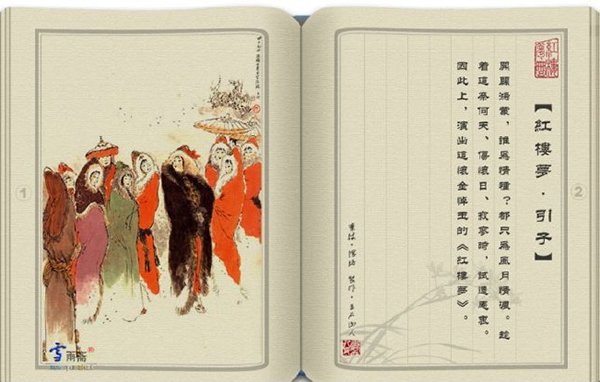 1
雪雨齋
【紅樓夢·引子】
開闢鴻蒙，誰爲情種？都只爲風月情濃。趁
着這奈何天、傷懷日、寂寥時，試遣愚衷。
因此上，演出這懷金悼玉的《紅樓夢》。
2